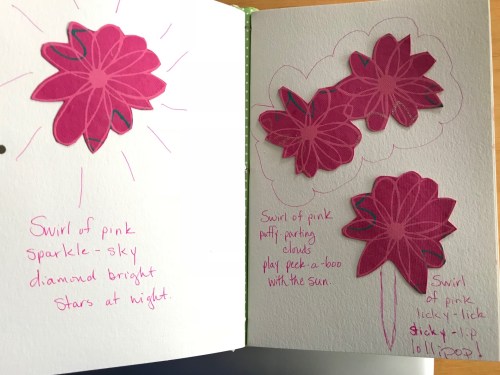 Swirl of pink
sparkle - sky
diamond bright
stars at night.
Swirl of pink
puffy parting
clouds
play peek-a-boo
with the sun.
Swirl
of pink
licky-lick
sticky-lip
lollipop!